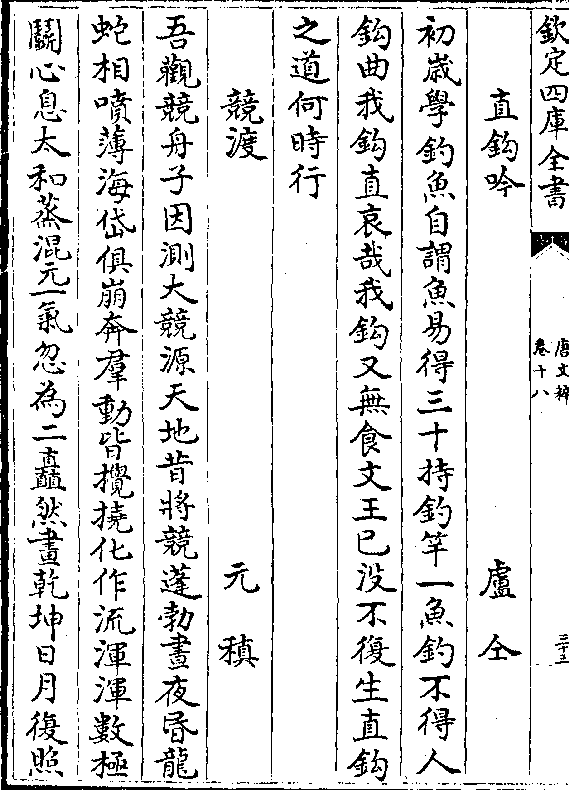 欽定四庫全書
唐文粹
卷十八
三十五
直鈎吟 盧仝
初歲學釣魚自謂魚易得三十持釣竿一魚釣不得人
鈎曲我鈎直哀哉我鈎又無食文王已没不復生直鈎
之道何時行
競渡 元稹
吾觀競舟子因測大競源天地昔將競蓬勃晝夜昬龍
蛇相噴薄海岱俱崩奔羣動皆攪撓化作流渾渾數極
鬬心息太和蒸混元一氣忽為二矗然畫乾坤日月復照